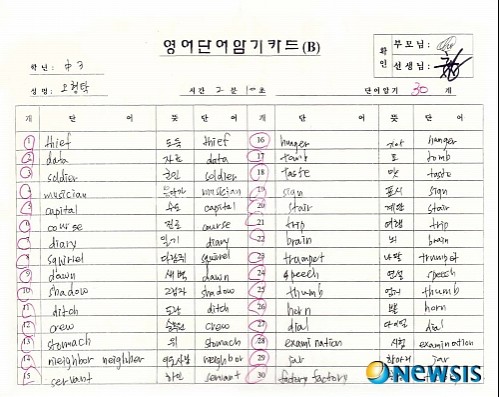 영어단어암기카드(B)
확인 부모님:
선생님:
학년: 中 3
성명: 오형탁 시간 2 분 10초 단어암기 30 개
개 단 어 뜻 단 어 개 단 어 뜻 단 어
1 thief 도둑 thief 16 hunger 기아 hunger
2 data 자료 data 17 tomb 묘 tomb
3 soldier 군인 soldier 18 taste 맛 taste
4 musician 음악가 musician 19 sign 표시 sign
5 capital 수도 capital 20 stair 계단 stair
6 course 진로 course 21 trip 여행 trip
7 diary 일기 diary 22 brain 뇌 brain
8 squirrel 다람쥐 squirrel 23 trumpet 나팔 trumpet
9 dawn 새벽 dawn 24 speech 연설 speech
10 shadow 그림자 shadow 25 thumb 엄지 thumb
11 ditch 도랑 ditch 26 horn 뿔 horn
12 crew 승무원 crew 27 dial 다이얼 dial
13 stomach 위 stomach 28 examination 시험 examination
14 neighbor neighber 이웃사람 neighbor 29 jar 항아리 jar
15 servant 하인 servant 30 factory
Onewsis